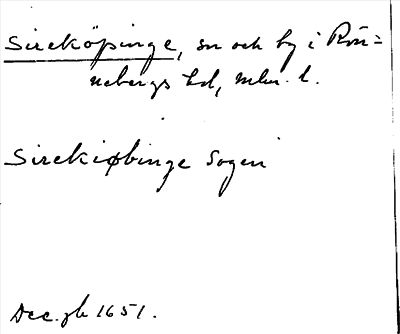 Sireköpinge, sn och by i Rön=
nebergs hd, Mlm. l.
Sirekiøbinge Sogen
Dec. jb 1651.